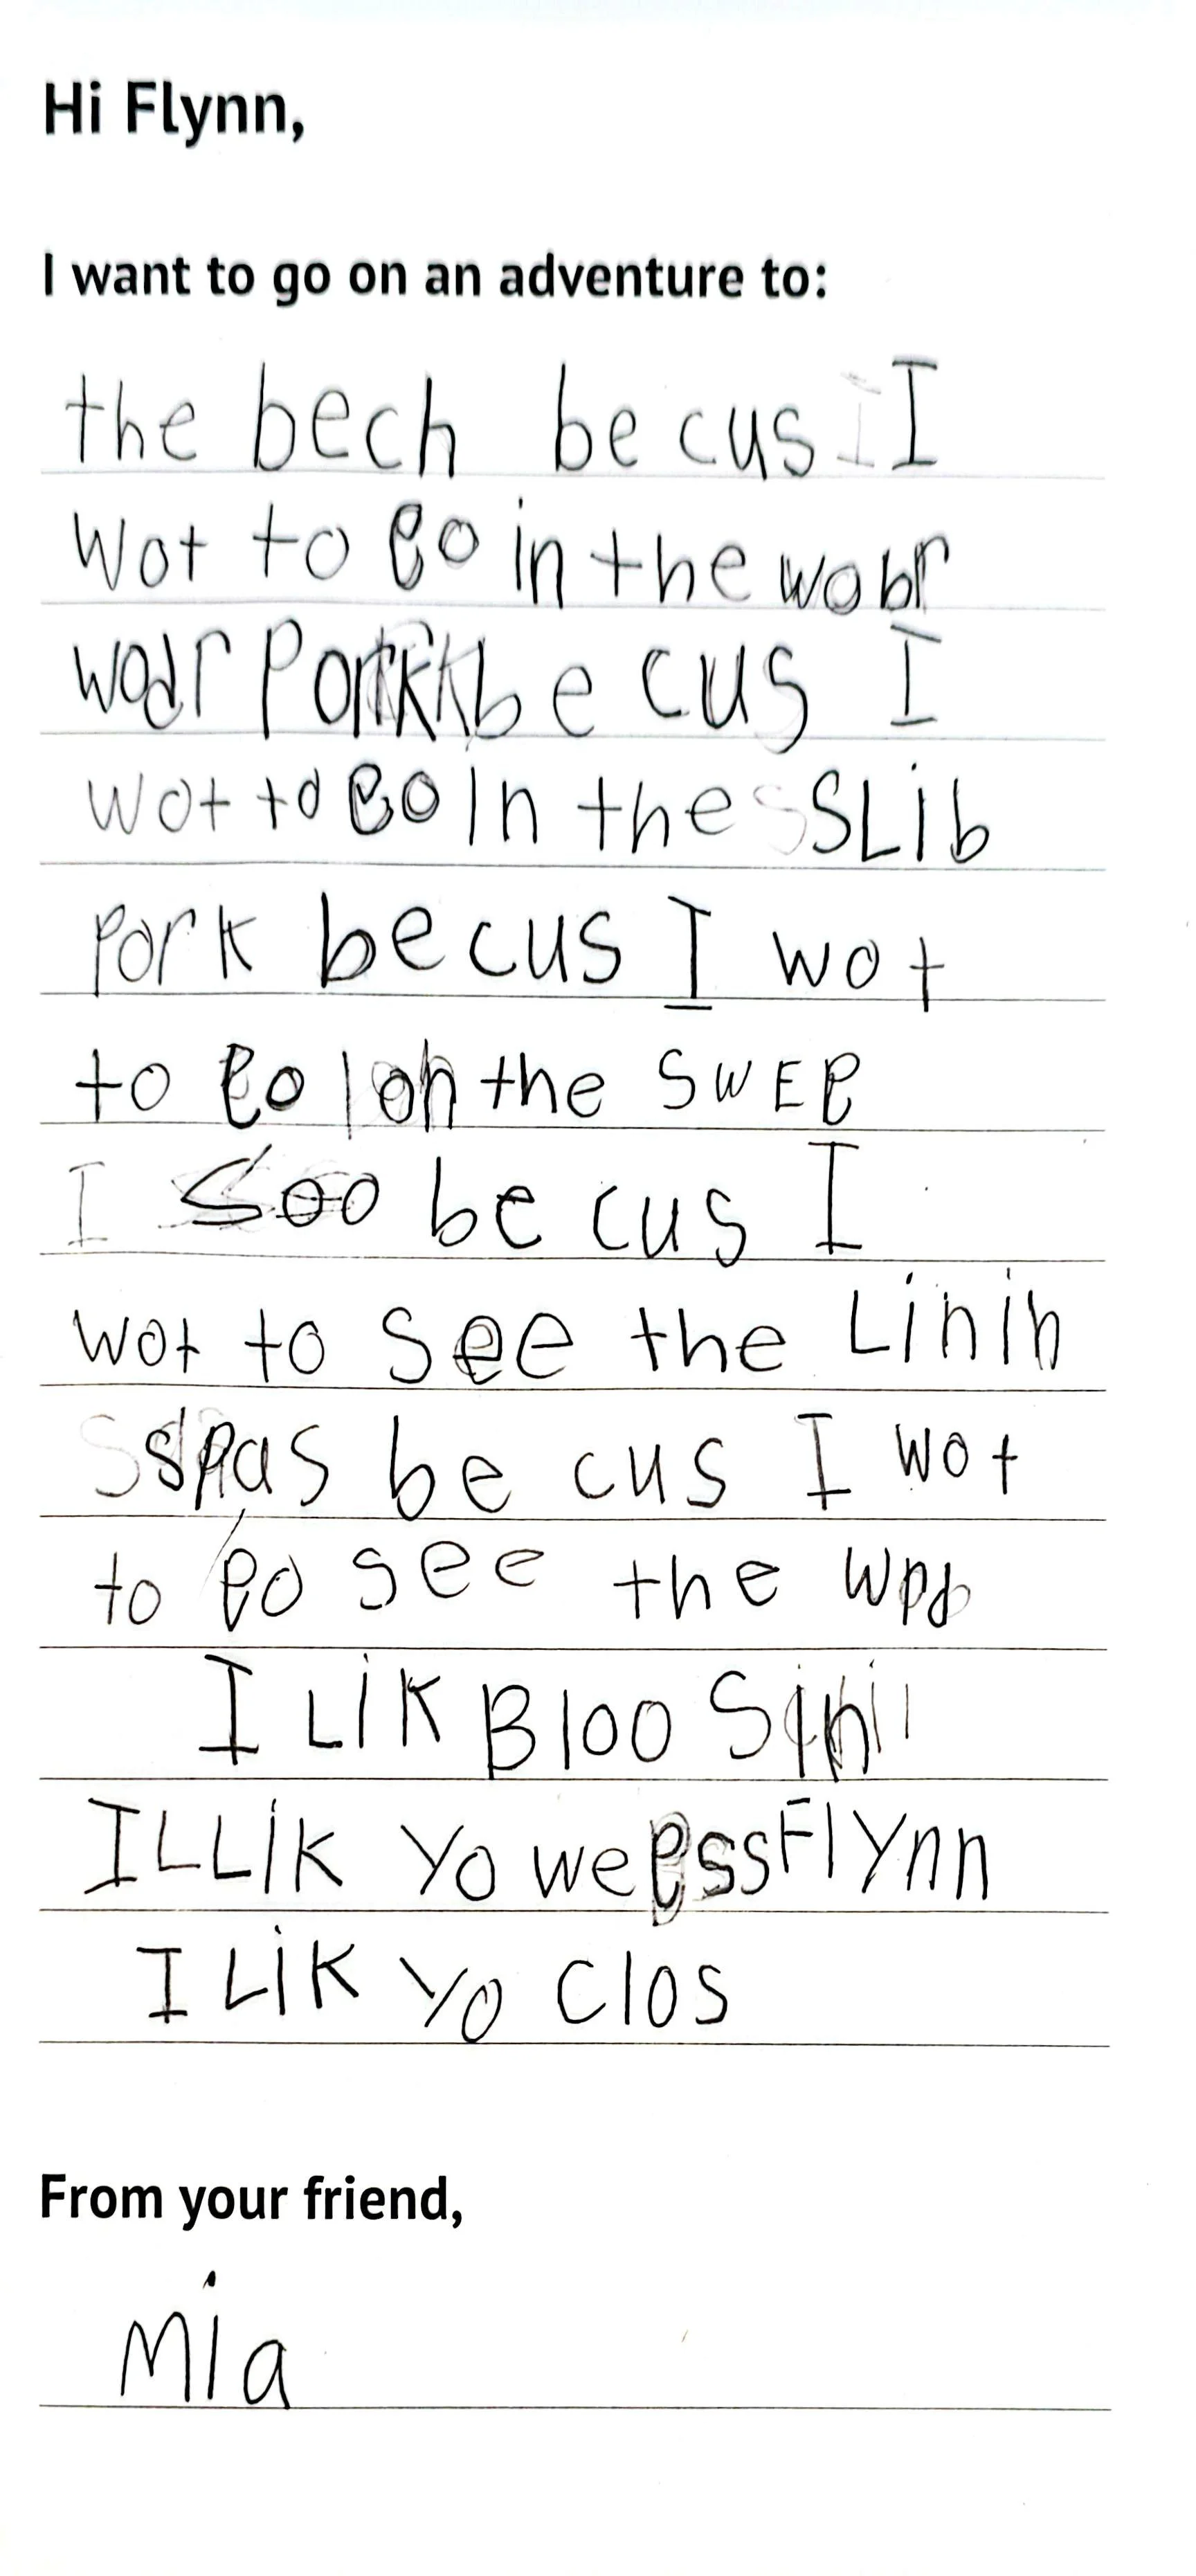 Hi Flynn,
I want to go on an adventure to:
the bech be cus I
wot to go in the wobr
wodr Pork be cus I
wot to go in the SLib
Pork be cus I wot
to go on the SWEg
I Soo be cus I
wot to see the Linin
Spas be cus I wot
to go see the
I LiK Bloo
I LLiK Yo wegss Flynn
I LiK Yo Clos
From your friend,
Mia